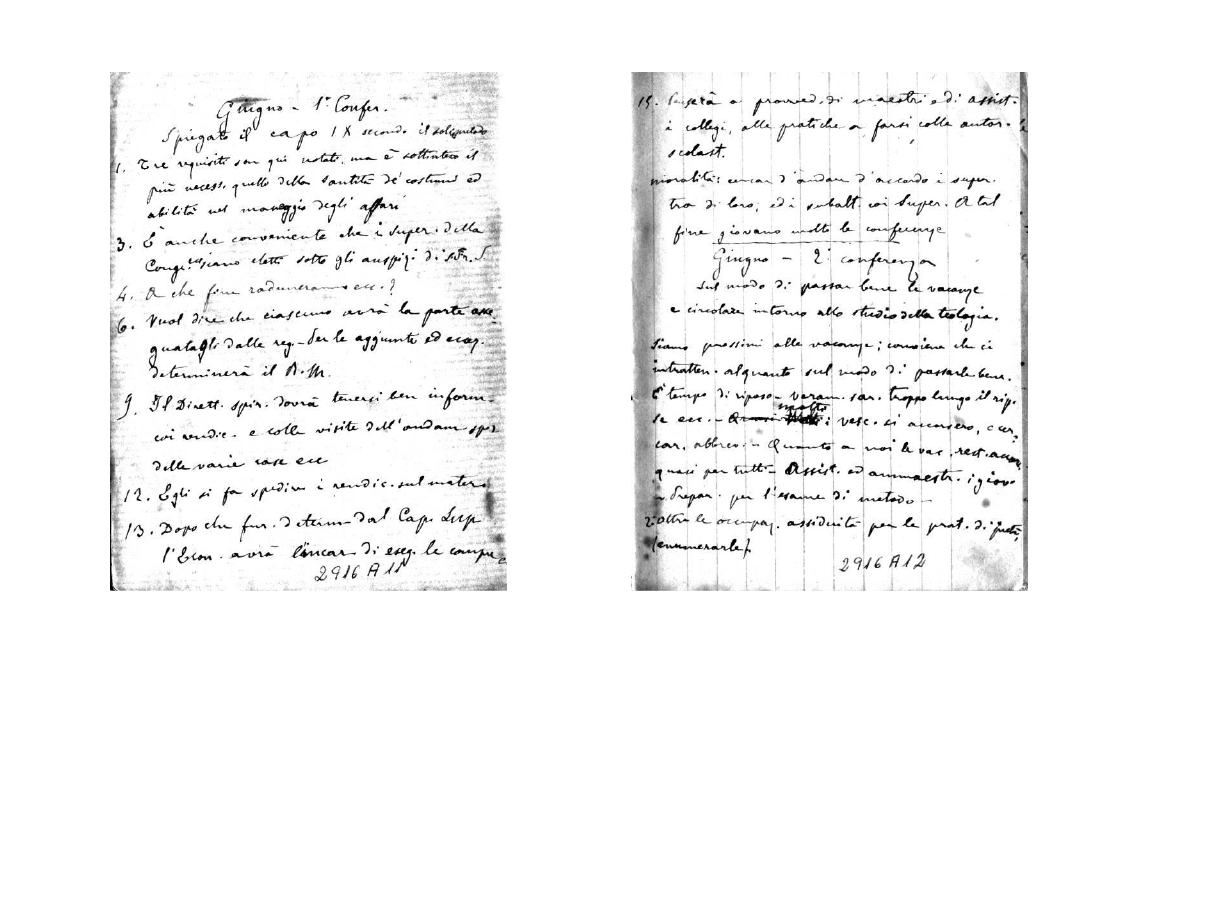 Giugno - 1ª Confer.
Spiegato il capo IX secondo il
1. Tre requisiti son qui notati. ma è sottinteso il
più necess. quello della santità de' costumi ed
abilità nel maneggio degli affari
3. È anche conveniente che i super. della
Congr. siano eletti sotto gli auspizi di S. Fr. S.
4. A che fine raduneranno ecc.?
6. Vuol dire che ciascuno avrà la parte
dalle reg. - Se le aggiunte ed ecc.
determinerà il R. M.
9. Il Dirett. spir. dovrà tenersi ben inform.
coi rendic. e colle visite dell'andam. spir.
delle varie case ecc
12. Egli si fa spedire i rendic. sul mater.
13. Dopo che fur. determ. dal Cap. Sup.
l'Econ. avrà l'incar. di eseg. le compre
2916 A 11
15. Penserà a provved. di maestri e di assist.
i collegi, alle pratiche a farsi colle autor.
scolast.
moralità: cercar d'andare d'accordo i super.
tra di loro, ed i subalt. coi Super. A tal
fine giovano molto le conferenze
Giugno - 2ª conferenza
Sul modo di passar bene le vacanze
e circolare intorno allo studio della teologia.
Siamo prossimi alle vacanze; conviene che ci
intratten. alquanto sul modo di passarle bene.
È tempo di riposo - veram. sar. troppo lungo il rip.
se ecc. - molti vesc. si accorsero, e cer-
car. abbrev. - Quanto a noi le vac. rest.
quasi per tutti - Assist. ed ammaestr. i giov.
prepar. per l'esame di metodo -
2. Oltre le occupaz. assiduità per le prat. di pietà,
(enumerarle).
2916 A 12